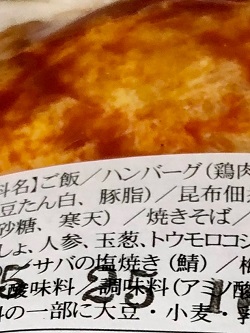 料名】ご飯／ハンバーグ（鶏肉
豆たん白、豚脂）／昆布佃
砂糖、寒天）／焼きそば／
しょ、人参、玉葱、トウモロコシ
／サバの塩焼き（鯖）／
酸味料 調味料（アミノ酸
の一部に大豆・小麦・